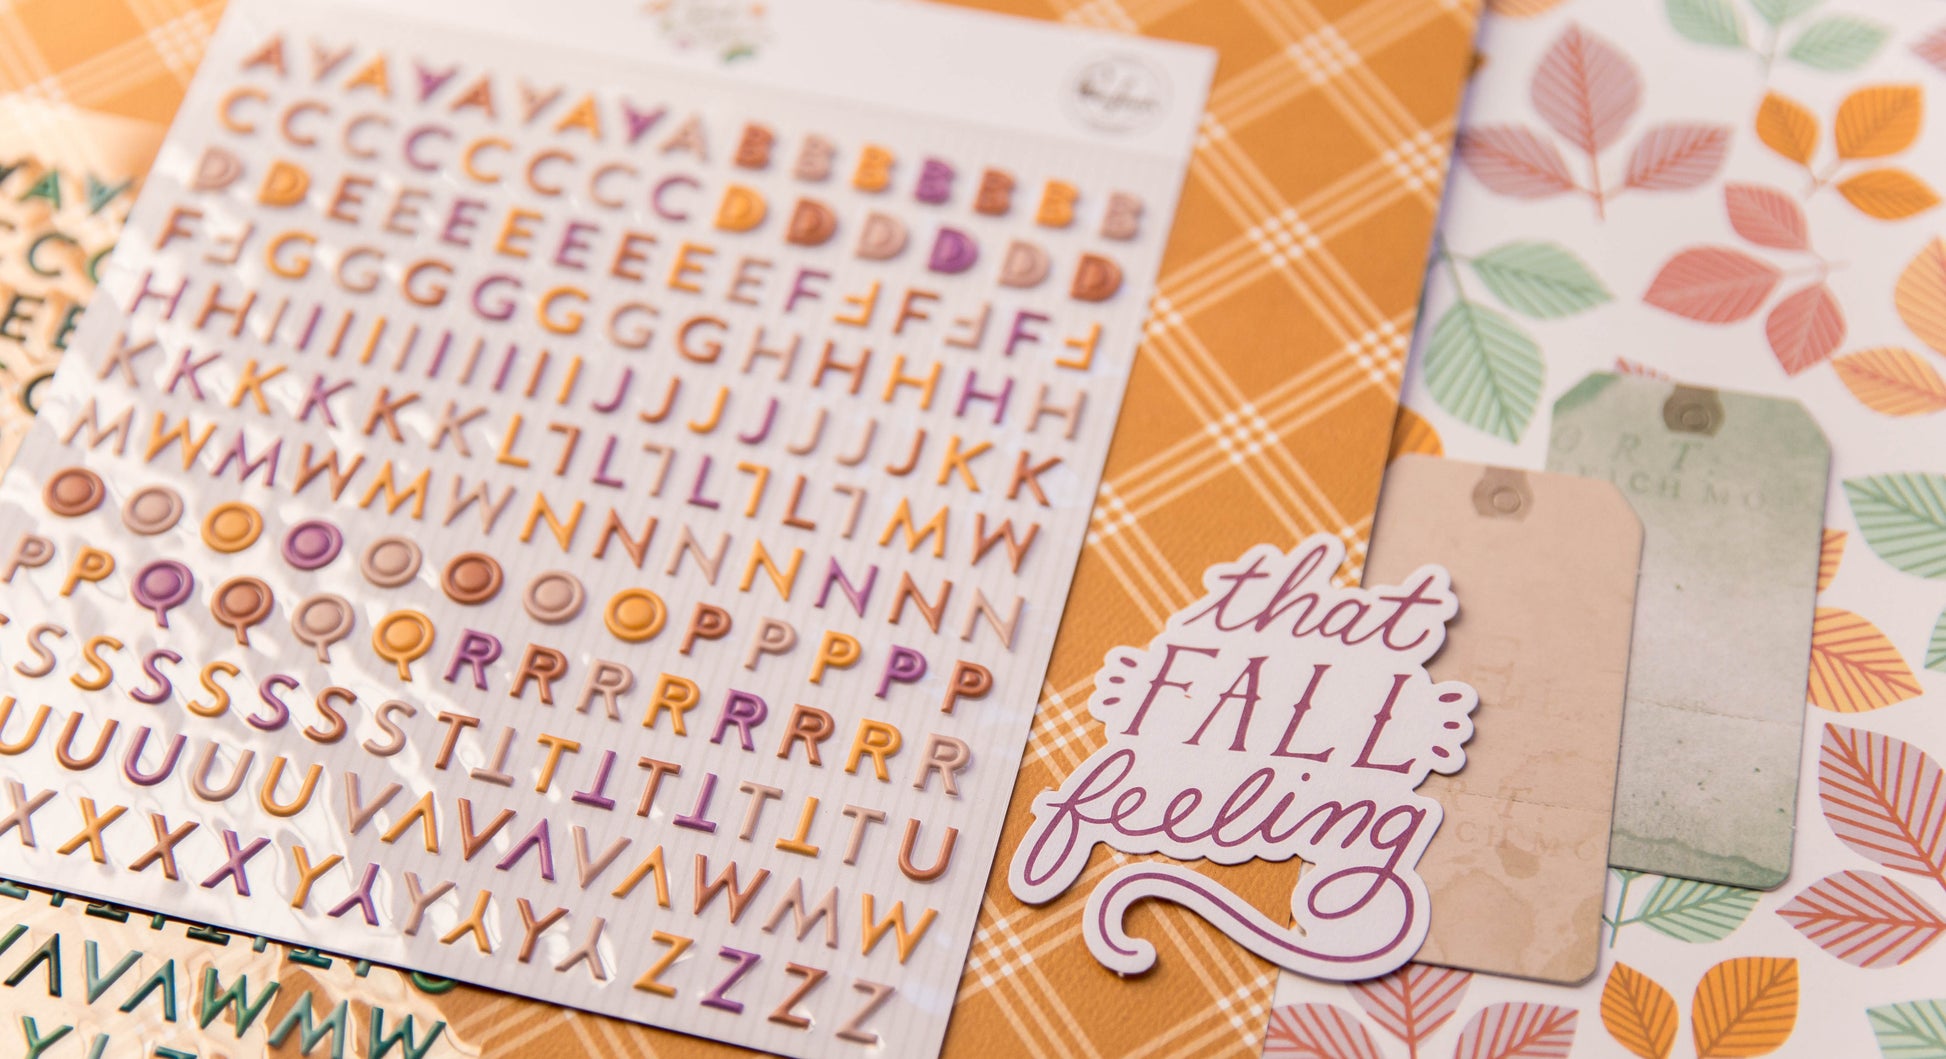 A A A A A A A A A B B B B B B B
C C C C C C C C D D D D D D
D D E E E E E E E E F F F F F F
F F G G G G G G G H H H H H
H H I I I I I I I I I I J J J J J J J K K
K K K K K K L L L L L L L L M W
M W M W M W N N N N N N N
O O O O O O O O P P P P P
P P Q Q Q Q R R R R R R R R
S S S S S S S T T T T T T T T T U
U U U U U V V V V V V W M W
X X X X Y Y Y Y Y Y Z Z Z Z
that
FALL
feeling